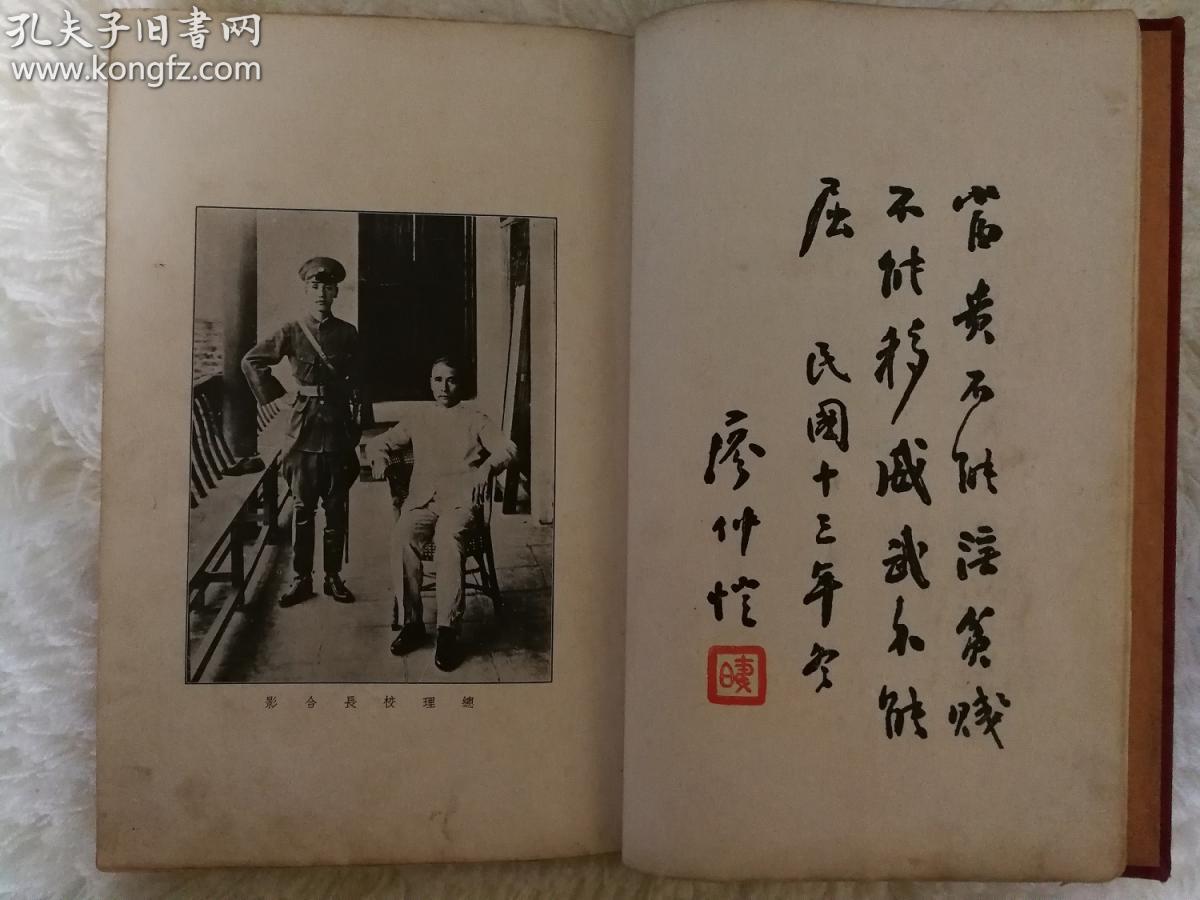 孔夫子旧书网
www.kongfz.com
富貴不能淫貧賤
不能移威武不能
屈 民國十三年冬
廖仲愷
總理校長合影